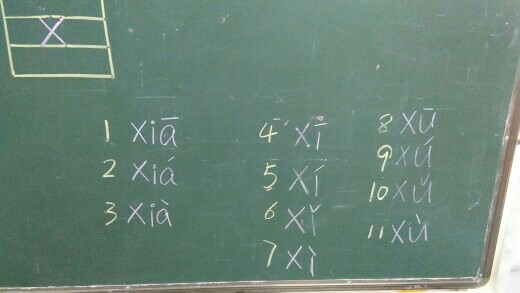 x
1 xiā
2 xiá
3 xià
4 xī
5 xí
6 xǐ
7 xì
8 xū
9 xú
10 xǔ
11 xù